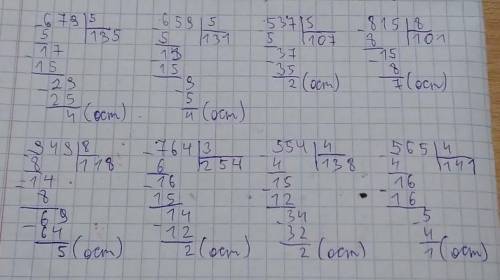 -679 5
5 135
-17
15
-29
25
4 (ост)
-659 5
5 131
-15
15
-9
5
4 (ост)
-537 5
5 107
-37
35
2 (ост)
-815 8
8 101
-15
8
7 (ост)
-949 8
8 118
-14
8
-69
64
5 (ост)
-764 3
6 254
-16
15
-14
12
2 (ост)
-554 4
4 138
-15
12
-34
32
2 (ост)
-565 4
4 141
-16
16
-5
4
1 (ост)